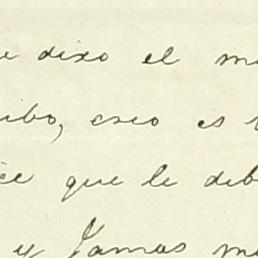 e dixo el m
ibo, creo es
ce que le deb
y Jamas m